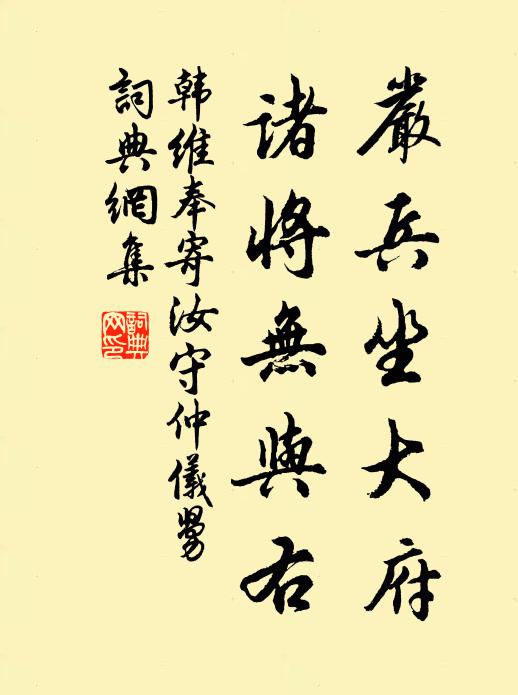 嚴兵坐大府
諸將無與右
韩維奉寄汝守仲儀舅
詞典網集
詞典网印